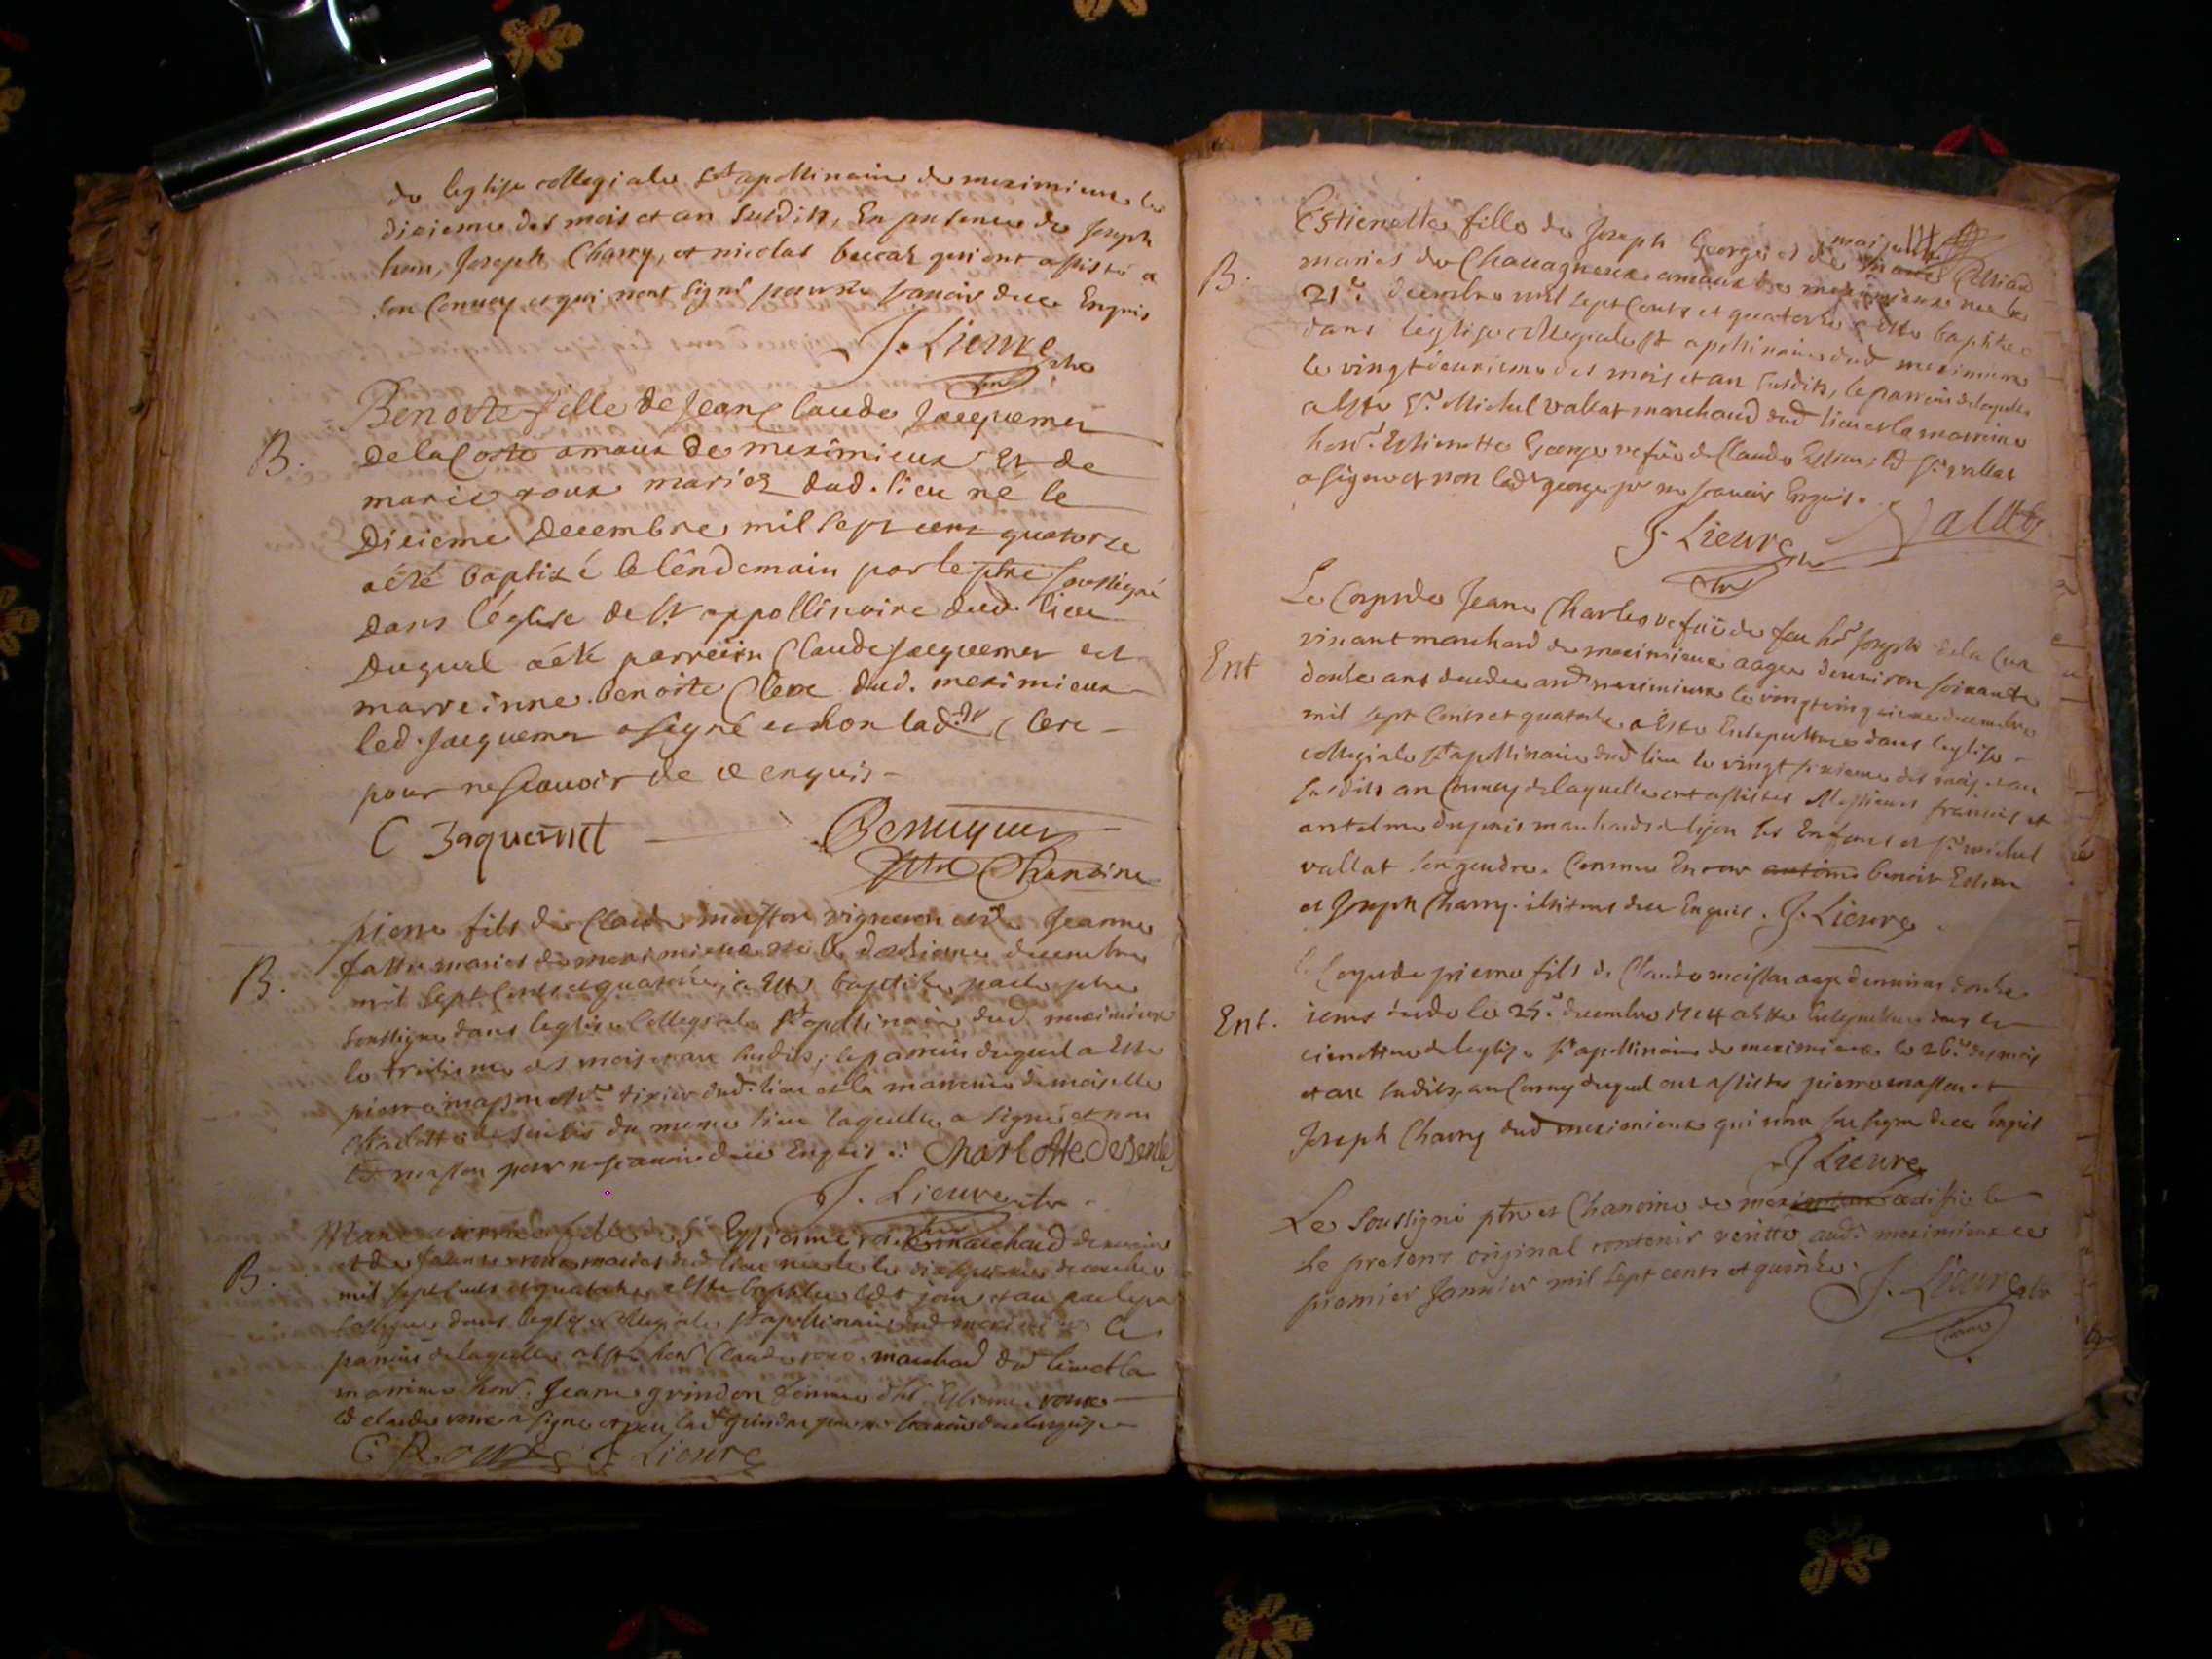 de leglise collegiale St apollinaire de meximieux le
dixieme des mois et an susdits, En presence de Joseph
Joseph Charry, et nicolas beccat qui ont assisté a
son Convoy et qui nont signé pour ne scavoir de ce Enquis
J. Lieure ptre
B.
Benoite fille de Jean Claude Jacquemet
de la Coste amaux de meximieux Et de
marie roux mariez dud. lieu ne le
Dixieme Decembre mil sept cens quatorse
a été baptizé le lendemain par le ptre soussigné
dans l'église de St appollinaire dud. lieu
duquel a été parrein Claude Jacquemet et
marreinne benoite Clerc dud. meximieux
led. Jacquemet a signé et non lad.te Clerc
pour ne scavoir de ce enquis
C Jaquemet
ptre Chanoine
B.
pierre fils de Claude maisson vigneron et de Jeanne
mariés de meximieux ne le douzieme decembre
mil sept cents et quatorze, a esté baptisé par le ptre
soussigné dans leglise Collegiale St apollinaire dud. meximieux
le treizieme des mois et an susdits, le parrein duquel a esté
pierre masson tixier dud. lieu et la marreine demoiselle
Charlotte de senlis du meme lieu laquelle a signé et non
led masson pour ne scavoir de ce Enquis. Charlotte de Senlis
J. Lieure ptre
B.
Marie fille de Sr Estienne roux marchand de meximieux
et de Jeanne mariés dud lieu née le decembre
mil sept cents et quatorze a esté baptisée led jour et an par le
soussigné dans leglise collegiale St apollinaire dud meximieux le
parrein de laquelle a esté hond Claude roux marchand dud lieu et la
marrine hond. Jeanne grindon femme d'hd Estienne roux
led claude roux a signé et non lad grindon pour ne scavoir de ce enquise
C Roux J. Lieure
B.
Estienette fille de Joseph George et de
mariés de Chavagneux amaux de meximieux nee le
21e. decembre mil sept Cents et quatorze a esté baptisée
dans leglise collegiale St apollinaire dud meximieux
le vingt deuxieme des mois et an susdits, le parrein de laquelle
a esté Sr. Michel vallat marchand dud lieu et la marreine
hond. Estienette George vefve de Claude led Sr vallat
a signé et non lad george pr ne scavoir Enquis.
J. Lieure ptre Vallat
Ent
Le Corps de Jeanne Charles vefve de feu hd Joseph de la Cua
vivant marchand de meximieux aagee denviron soixante
douze ans decedee aud meximieux le vingt cinquieme decembre
mil sept Cents et quatorze a esté Ensepulturee dans leglise
collegiale St apollinaire dud lieu le vingt sixieme des mois et an
susdits au Convoy de laquelle ont assistes Messieurs francois et
antelme marchands de lyon ses Enfans et Sr michel
vallat son gendre. Comme Encor antoine benoit
et Joseph Charry. de ce Enquis. J. Lieure
Ent.
le Corps de pierre fils de Claude maisson aagé denviron douze
jours décédé le 25e. decembre 1714 a esté Ensepulturé dans le
cimetiere de leglise St apollinaire de meximieux le 26e des mois
et an susdits, au Convoy duquel ont assistes pierre masson et
Joseph Charry dud meximieux qui nont sceu signer de ce Enquis
J Lieure
Le Soussigné ptre et Chanoine de meximieux certiffie le
le present original contenir verité aud. meximieux ce
premier Janvier mil sept cents et quinze.
J. Lieure ptre